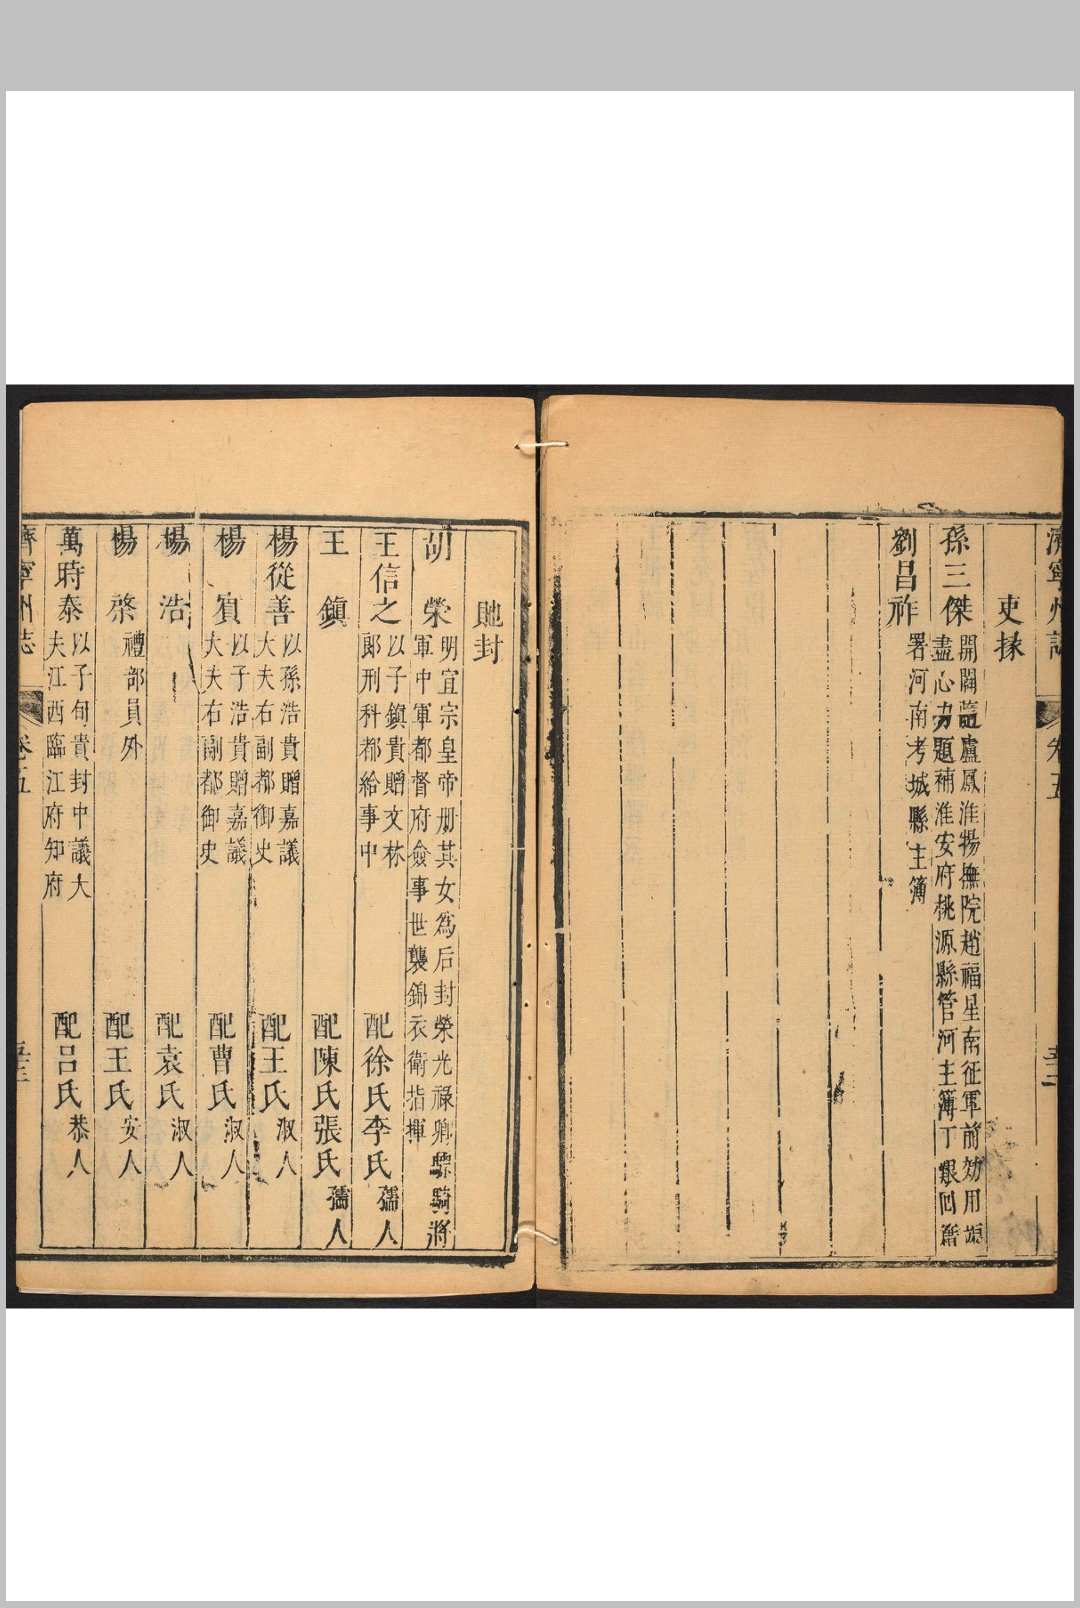 濟寧州志 卷五 五十二
吏掾
孫三傑 開闢蘆鳳淮揚撫院趙福星南征軍前効用
盡心力題補淮安府桃源縣管河主簿丁艱回籍
劉昌祚 署河南考城縣主簿
貤封
胡榮 明宣宗皇帝册其女為后封榮光祿卿驃騎將
軍中軍都督府僉事世襲錦衣衛指揮
王信之 以子鎮貴贈文林
郎刑科都給事中 配徐氏李氏 孺人
王鎮 配陳氏張氏 孺人
楊從善 以孫浩貴贈嘉議
大夫右副都御史 配王氏 淑人
楊賓 以子浩貴贈嘉議
大夫右副都御史 配曹氏 淑人
楊浩 配袁氏 淑人
楊棨 禮部員外 配王氏 安人
萬時泰 以子旬貴封中議大
夫江西臨江府知府 配呂氏 恭人
濟寧州志 卷五